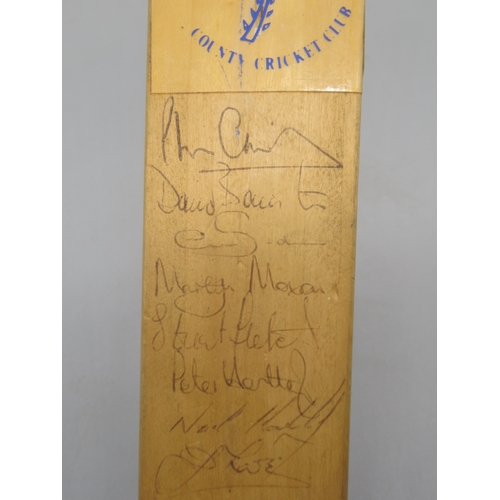 COUNTY CRICKET CLUB
Phil Carrick
David Bairstow
Martyn Moxon
Stuart Fletcher
Peter Hartley
Neil Hartley